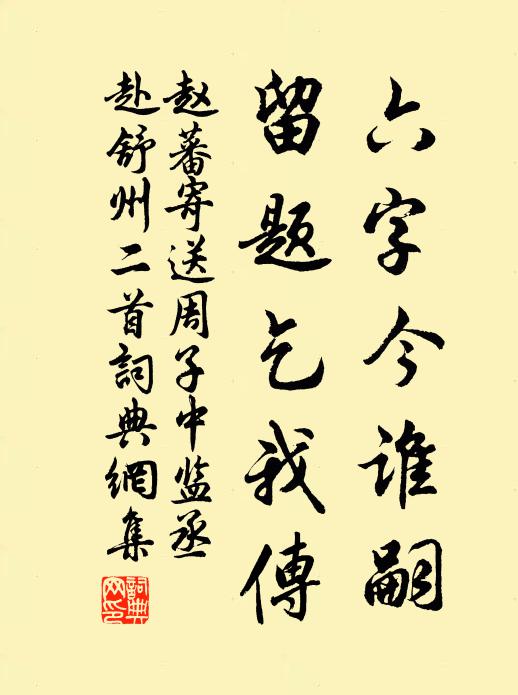 六字今谁嗣
留题乞我傳
赵蕃寄送周子中监丞
赴舒州二首詞典網集
詞典网印